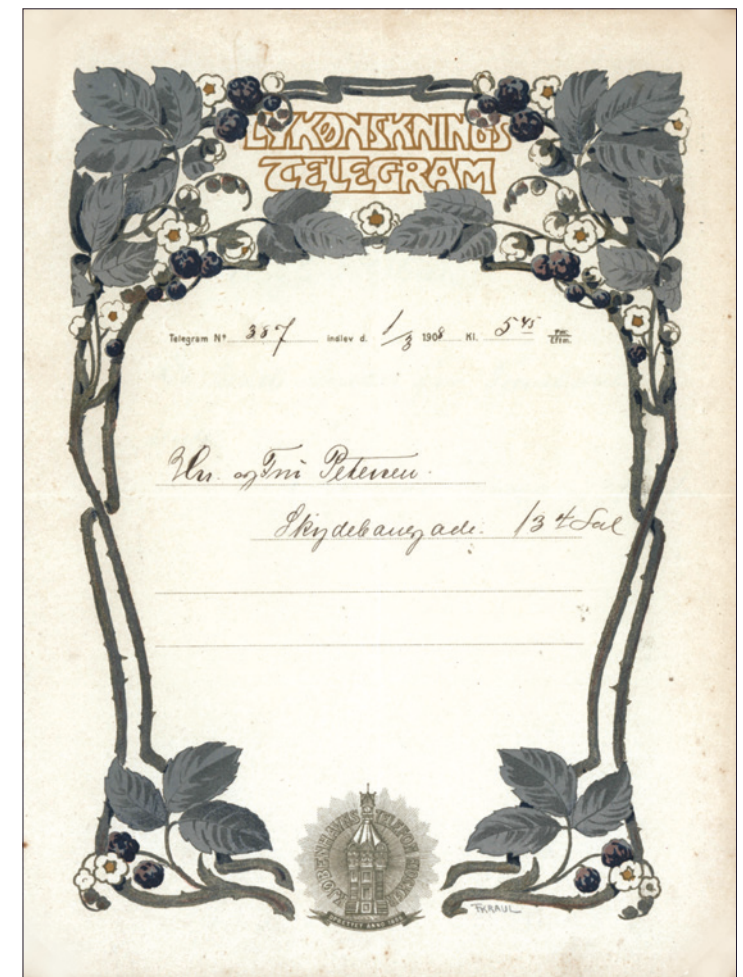 LYKØNSKNINGS
TELEGRAM
Telegram Nº 387 indlev d. 1/3 1908 Kl. 5 45 Fm. Eftm.
Hr. og Fru Petersen.
Skydebanegade. 13 4 Sal
KJØBENHAVNS TELEFON KIOSKER
OPRETTET ANNO 1896
F.KRAUL